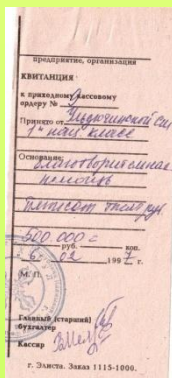 предприятие, организация
КВИТАНЦИЯ
к приходному кассовому
ордеру № 9
Принято от
1й нац класс
Основание:
благотворительная
помощь
Пятьсот тысяч руб
500.000= руб. коп.
6. 02 1997 г.
М. П.
Главный (старший)
бухгалтер
Кассир
г. Элиста. Заказ 1115-1000.